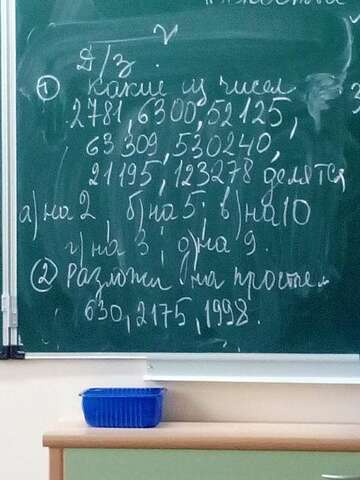 Д/з.
① какие из чисел
2781, 6300, 52125,
63309, 530240,
21195, 123278 делятся
а) на 2, б) на 5; в) на 10
г) на 3; д) на 9.
② Разложи на простые
630, 2175, 1998.